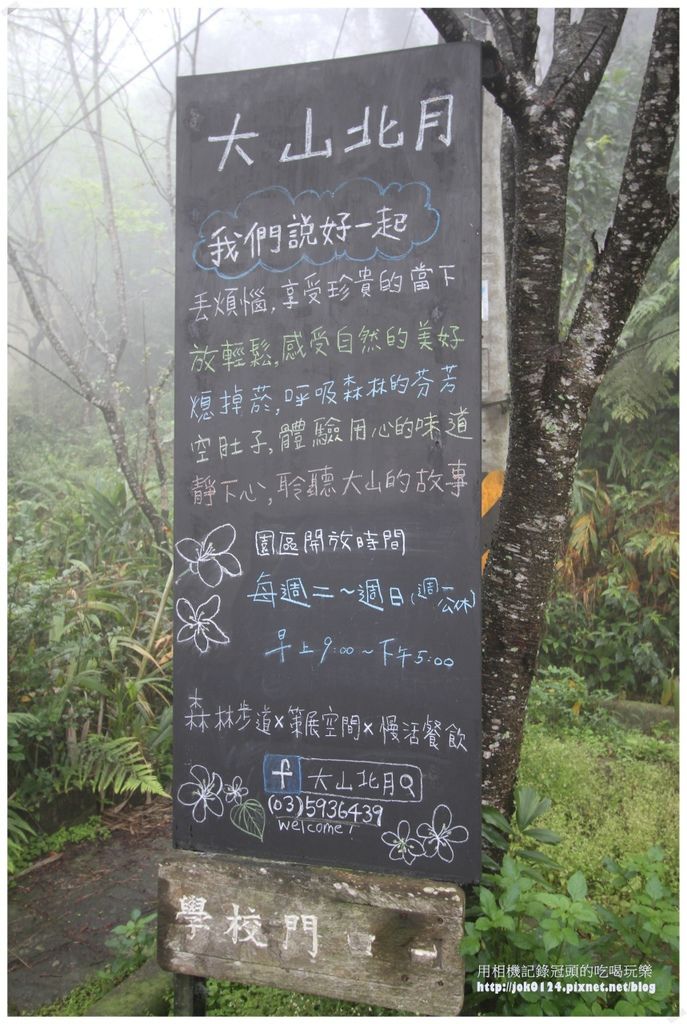 大山北月
我們說好一起
丟煩惱,享受珍貴的當下
放輕鬆,感受自然的美好
熄掉菸,呼吸森林的芬芳
空肚子,體驗用心的味道
靜下心,聆聽大山的故事
園區開放時間
每週二~週日(週一公休)
早上9:00~下午5:00
森林步道×策展空間×慢活餐飲
f 大山北月
(03)5936439
welcome!
學校門口
用相機記錄冠頭的吃喝玩樂
http://jok0124.pixnet.net/blog